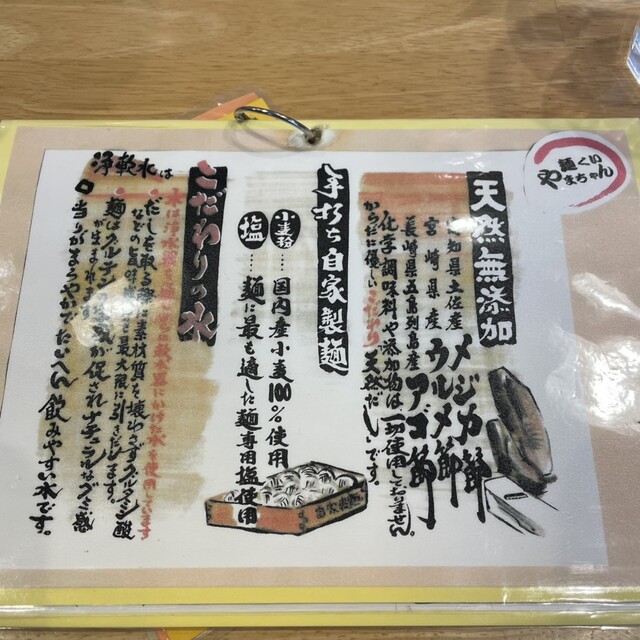 麺くい
やまちゃん
天然無添加
高知県土佐産 メジカ節
宮崎県産 ウルメ節
長崎県五島列島産 アゴ節
化学調味料や添加物は一切使用しておりません。
からだに優しいこだわり天然だしです。
手打ち自家製麺
小麦粉…国内産小麦100%使用
塩…麺に最も適した麺専用塩使用
こだわりの水
水は浄水器を通し
軟水器にかけた水を使用しています
浄軟水は
だしを取る際に素材質を壊わさずグルタミン酸
などの旨味を最大限に引きだします。
麺はグルテンの
が促されナチュラルな
口当りがまろやかでたいへん飲みやすい水です。